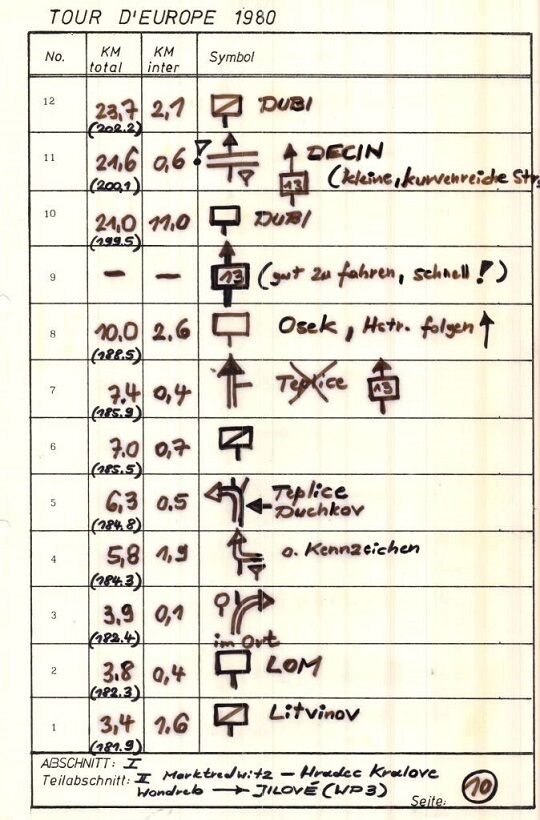 TOUR D'EUROPE 1980
No. KM total KM inter Symbol
12 23,7 2,1 DUBI
(202.2)
11 21,6 0,6 DECIN
(200,1) 13 (kleine, kurvenreiche Str.
10 21,0 11,0 DUBI
(199.5)
9 — — 13 (gut zu fahren, schnell!)
8 10,0 2,6 Osek, Hstr. folgen
(188.5)
7 7,4 0,4 Teplice 13
(185.9)
6 7.0 0,7
(185.5)
5 6,3 0,5 Teplice
(184.8) Duchkov
4 5,8 1,9 o. Kennzeichen
(184.3)
3 3,9 0,1
(182.4) im Ort
2 3.8 0,4 LOM
(182.3)
1 3,4 1.6 Litvinov
(181.9)
ABSCHNITT: I
Teilabschnitt: II Marktredwitz – Hradec Kralove
Wondreb → JILOVÉ (WP3)
Seite: 10